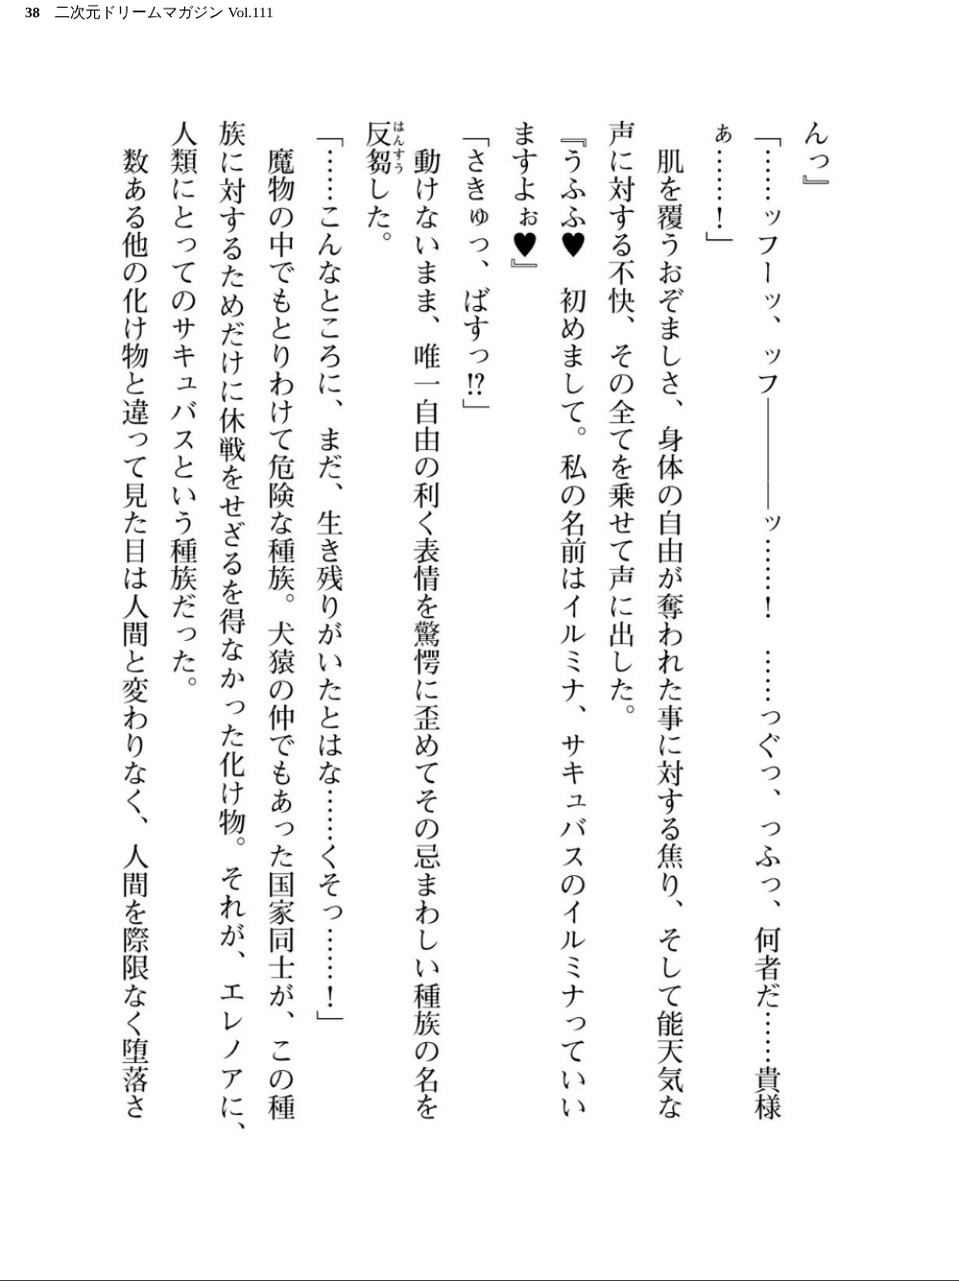 38 二次元ドリームマガジン Vol.111
んっ』
「……ッフーッ、ッフ――――ッ……！　……っぐっ、っふっ、何者だ……貴様
ぁ……！」
　肌を覆うおぞましさ、身体の自由が奪われた事に対する焦り、そして能天気な
声に対する不快、その全てを乗せて声に出した。
『うふふ♥　初めまして。私の名前はイルミナ、サキュバスのイルミナっていい
ますよぉ♥』
「さきゅっ、ばすっ!?」
　動けないまま、唯一自由の利く表情を驚愕に歪めてその忌まわしい種族の名を
反芻した。
はんすう
「……こんなところに、まだ、生き残りがいたとはな……くそっ……！」
　魔物の中でもとりわけて危険な種族。犬猿の仲でもあった国家同士が、この種
族に対するためだけに休戦をせざるを得なかった化け物。それが、エレノアに、
人類にとってのサキュバスという種族だった。
　数ある他の化け物と違って見た目は人間と変わりなく、人間を際限なく堕落さ